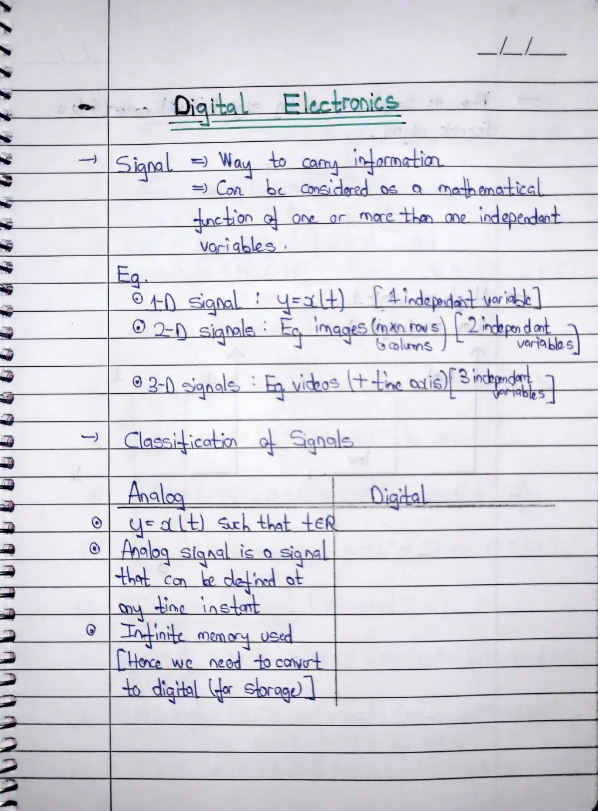 _/_/_
Digital Electronics
→ Signal ⇒ Way to carry information
⇒ Can be considered as a mathematical
function of one or more than one independant
variables.
Eg.
⊙ 1-D signal : y=x(t) [1 independant variable]
⊙ 2-D signals : Eg images (mxn rows [2 independant
& columns) variables]
⊙ 3-D signals : Eg videos (+ time axis) [3 independant
variables]
→ Classification of Signals
Analog Digital
⊙ y=x(t) such that t∈R
⊙ Analog signal is a signal
that can be defined at
any time instant
⊙ Infinite memory used
[Hence we need to convert
to digital (for storage)]